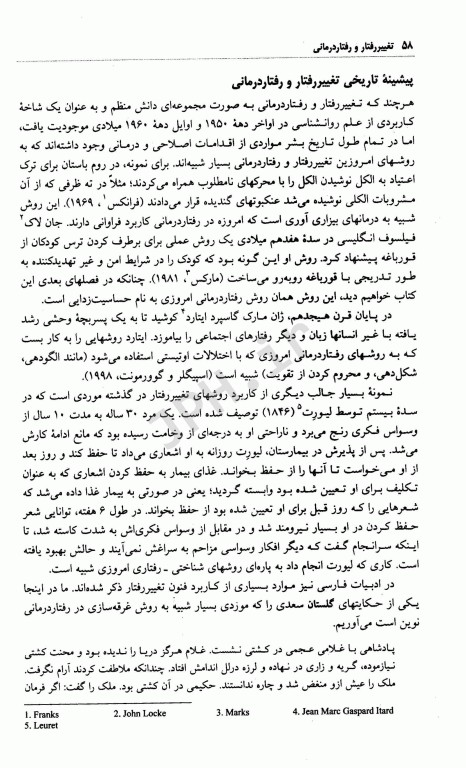 ۵۸ تغییررفتار و رفتاردرمانی
پیشینهٔ تاریخی تغییررفتار و رفتاردرمانی
هرچند که تغییررفتار و رفتاردرمانی به صورت مجموعه‌ای دانش منظم و به عنوان یک شاخهٔ
کاربردی از علم روانشناسی در اواخر دههٔ ۱۹۵۰ و اوایل دههٔ ۱۹۶۰ میلادی موجودیت یافت،
اما در تمام طول تاریخ بشر مواردی از اقدامات اصلاحی و درمانی وجود داشته‌اند که به
روشهای امروزین تغییررفتار و رفتاردرمانی بسیار شبیه‌اند. برای نمونه، در روم باستان برای ترک
اعتیاد به الکل نوشیدن الکل را با محرکهای نامطلوب همراه می‌کردند؛ مثلاً در ته ظرفی که از آن
مشروبات الکلی نوشیده می‌شد عنکبوتهای گندیده قرار می‌دادند (فرانکس۱، ۱۹۶۹). این روش
شبیه به درمانهای بیزاری آوری است که امروزه در رفتاردرمانی کاربرد فراوانی دارند. جان لاک۲
فیلسوف انگلیسی در سدهٔ هفدهم میلادی یک روش عملی برای برطرف کردن ترس کودکان از
قورباغه پیشنهاد کرد. روش او این گونه بود که کودک را در شرایط امن و غیر تهدیدکننده به
طور تدریجی با قورباغه روبه‌رو می‌ساخت (مارکس۳، ۱۹۸۱). چنانکه در فصلهای بعدی این
کتاب خواهیم دید، این روش همان روش رفتاردرمانی امروزی به نام حساسیت‌زدایی است.
در پایان قرن هیجدهم، ژان مارک گاسپرد ایتارد۴ کوشید تا به یک پسربچهٔ وحشی رشد
یافته با غیر انسانها زبان و دیگر رفتارهای اجتماعی را بیاموزد. ایتارد روشهایی را به کار بست
که به روشهای رفتاردرمانی امروزی که با اختلالات اوتیستی استفاده می‌شود (مانند الگودهی،
شکل‌دهی، و محروم کردن از تقویت) شبیه است (اسپیگلر و گوورمونت، ۱۹۹۸).
نمونهٔ بسیار جالب دیگری از کاربرد روشهای تغییررفتار در گذشته موردی است که در
سدهٔ بیستم توسط لیورت۵ (۱۸۴۶) توصیف شده است. یک مرد ۳۰ ساله به مدت ۱۰ سال از
وسواس فکری رنج می‌برد و ناراحتی او به درجه‌ای از وخامت رسیده بود که مانع ادامهٔ کارش
می‌شد. پس از پذیرش در بیمارستان، لیورت روزانه به او اشعاری می‌داد تا حفظ کند و روز بعد
از او می‌خواست تا آنها را از حفظ بخواند. غذای بیمار به حفظ کردن اشعاری که به عنوان
تکلیف برای او تعیین شده بود وابسته گردید؛ یعنی در صورتی به بیمار غذا داده می‌شد که
شعرهایی را که روز قبل برای او تعیین شده بود از حفظ بخواند. در طول ۶ هفته، توانایی شعر
حفظ کردن در او بسیار نیرومند شد و در مقابل از وسواس فکری‌اش به شدت کاسته شد، تا
اینکه سرانجام گفت که دیگر افکار وسواسی مزاحم به سراغش نمی‌آیند و حالش بهبود یافته
است. کاری که لیورت انجام داد به پاره‌ای روشهای شناختی ـ رفتاری امروزی شبیه است.
در ادبیات فارسی نیز موارد بسیاری از کاربرد فنون تغییررفتار ذکر شده‌اند. ما در اینجا
یکی از حکایتهای گلستان سعدی را که موردی بسیار شبیه به روش غرقه‌سازی در رفتاردرمانی
نوین است می‌آوریم.
پادشاهی با غلامی عجمی در کشتی نشست. غلام هرگز دریا را ندیده بود و محنت کشتی
نیازموده، گریه و زاری در نهاده و لرزه درلل اندامش افتاد. چندانکه ملاطفت کردند آرام نگرفت.
ملک را عیش ازو منغض شد و چاره ندانستند. حکیمی در آن کشتی بود. ملک را گفت: اگر فرمان
1. Franks 2. John Locke 3. Marks 4. Jean Marc Gaspard Itard
5. Leuret